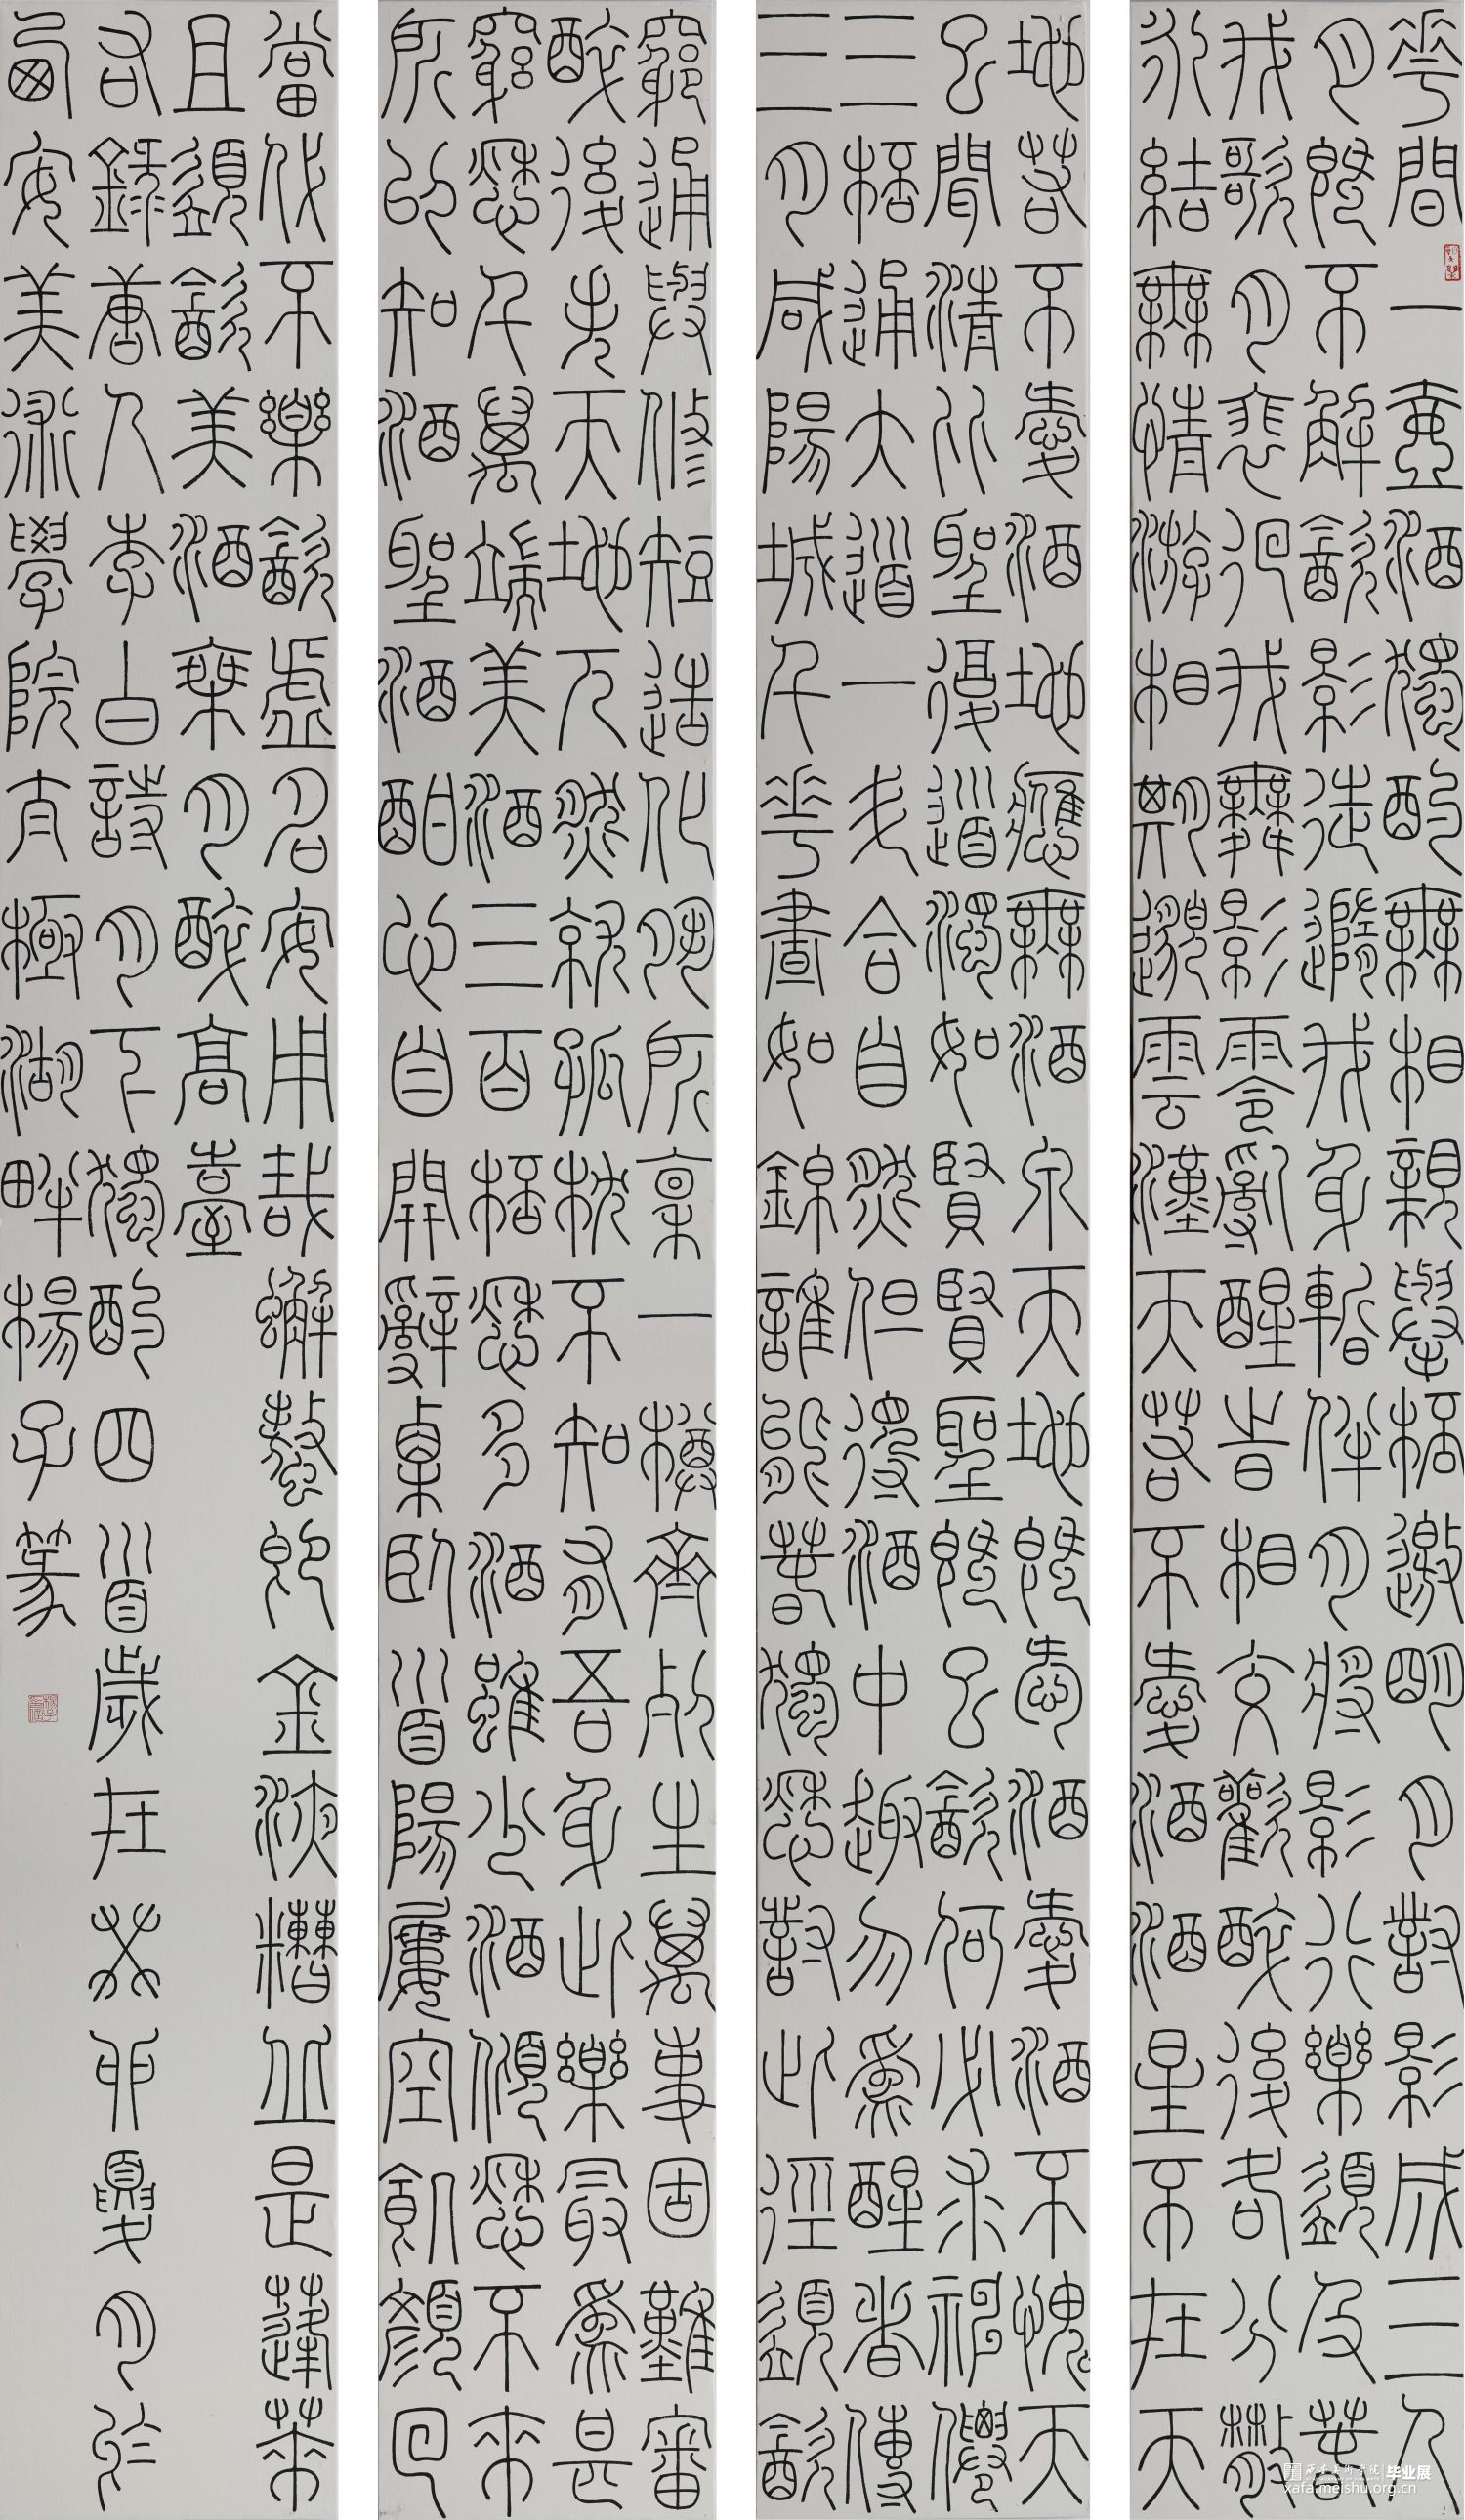 花間一壺酒獨酌無相親舉杯邀明月對影成三人
月既不解飲影徒隨我身暫伴月將影行樂須及春
我歌月裴回我舞影零亂醒時相交歡醉後各分散
永結無情游相期邈雲漢天若不愛酒酒星不在天
地若不愛酒地應無酒泉天地既愛酒愛酒不愧天
已聞清比聖復道濁如賢賢聖既已飲何必求神仙
三杯通大道一斗合自然但得酒中趣勿為醒者傳
三月咸陽城千花晝如錦誰能春獨愁對此徑須飲
窮通與修短造化夙所稟一樽齊死生萬事固難審
醉後失天地兀然就孤枕不知有吾身此樂最為甚
窮愁千萬端美酒三百杯愁多酒雖少酒傾愁不來
所以知酒聖酒酣心自開辭粟臥首陽屢空飢顏回
當代不樂飲虛名安用哉蟹螯即金液糟丘是蓬萊
且須飲美酒乘月醉高臺
右錄唐人李白詩月下獨酌四首歲在癸卯夏月於
西安美術學院太極湖畔楊子篆
西安美术学院 毕业展
xafa.meishu.org.cn